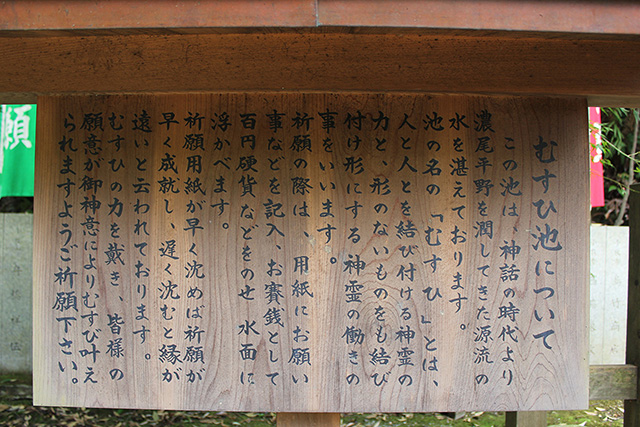 むすひ池について
この池は、神話の時代より
濃尾平野を潤してきた源流の
水を湛えております。
池の名の「むすひ」とは、
人と人とを結び付ける神霊の
力と、形のないものをも結び
付け形にする神霊の働きの
事をいいます。
祈願の際は、用紙にお願い
事などを記入、お賽銭として
百円硬貨などをのせ 水面に
浮かべます。
祈願用紙が早く沈めば祈願が
早く成就し、遅く沈むと縁が
遠いと云われております。
むすひの力を戴き、皆様の
願意が御神意によりむすび叶え
られますようご祈願下さい。
願